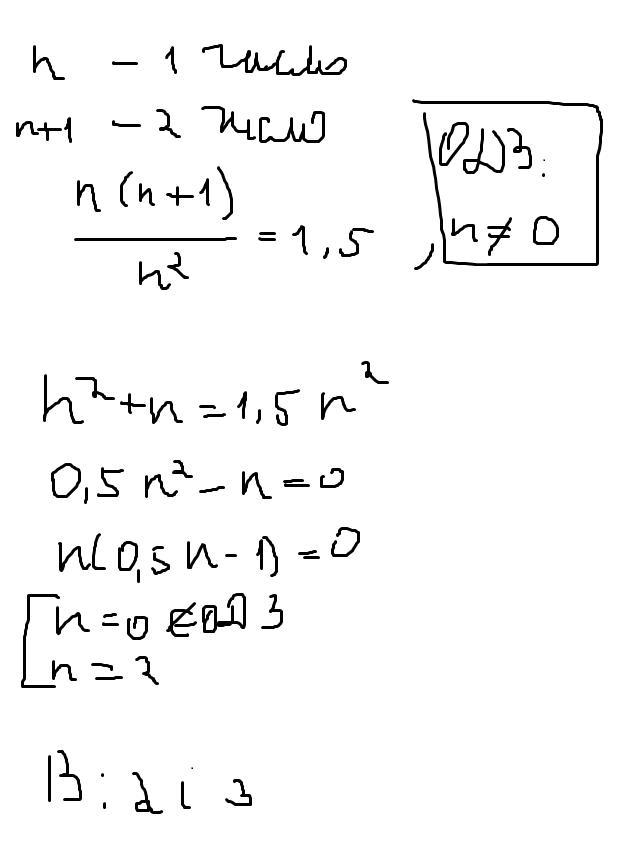 n - 1 число
n+1 - 2 число
n(n+1)/n² = 1,5 , ОДЗ:
n≠0
n²+n=1,5n²
0,5n²-n=0
n(0,5n-1)=0
[n=0 ∉ОДЗ
n=2
В: 2 і 3